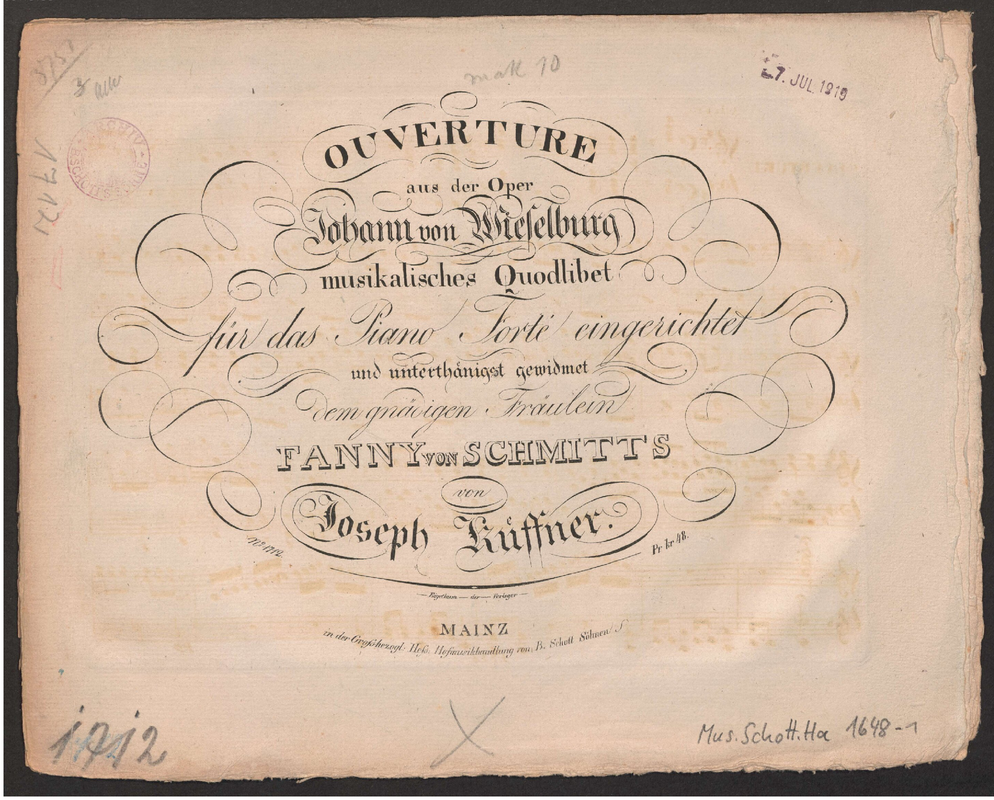 mak 10
7. JUL. 1919
1712
OUVERTURE
aus der Oper
Johann von Wieselburg
musikalisches Quodlibet
für das Piano Forté eingerichtet
und unterthänigst gewidmet
dem gnädigen Fräulein
FANNY VON SCHMITTS
von
Joseph Küffner.
No. 1712.
Pr. kr. 48.
Eigethum der Verleger
MAINZ
in der Großherzogl: Heß: Hofmusikhandlung von B. Schott Söhnen
1712
Mus.Schott.Ha 1648-1